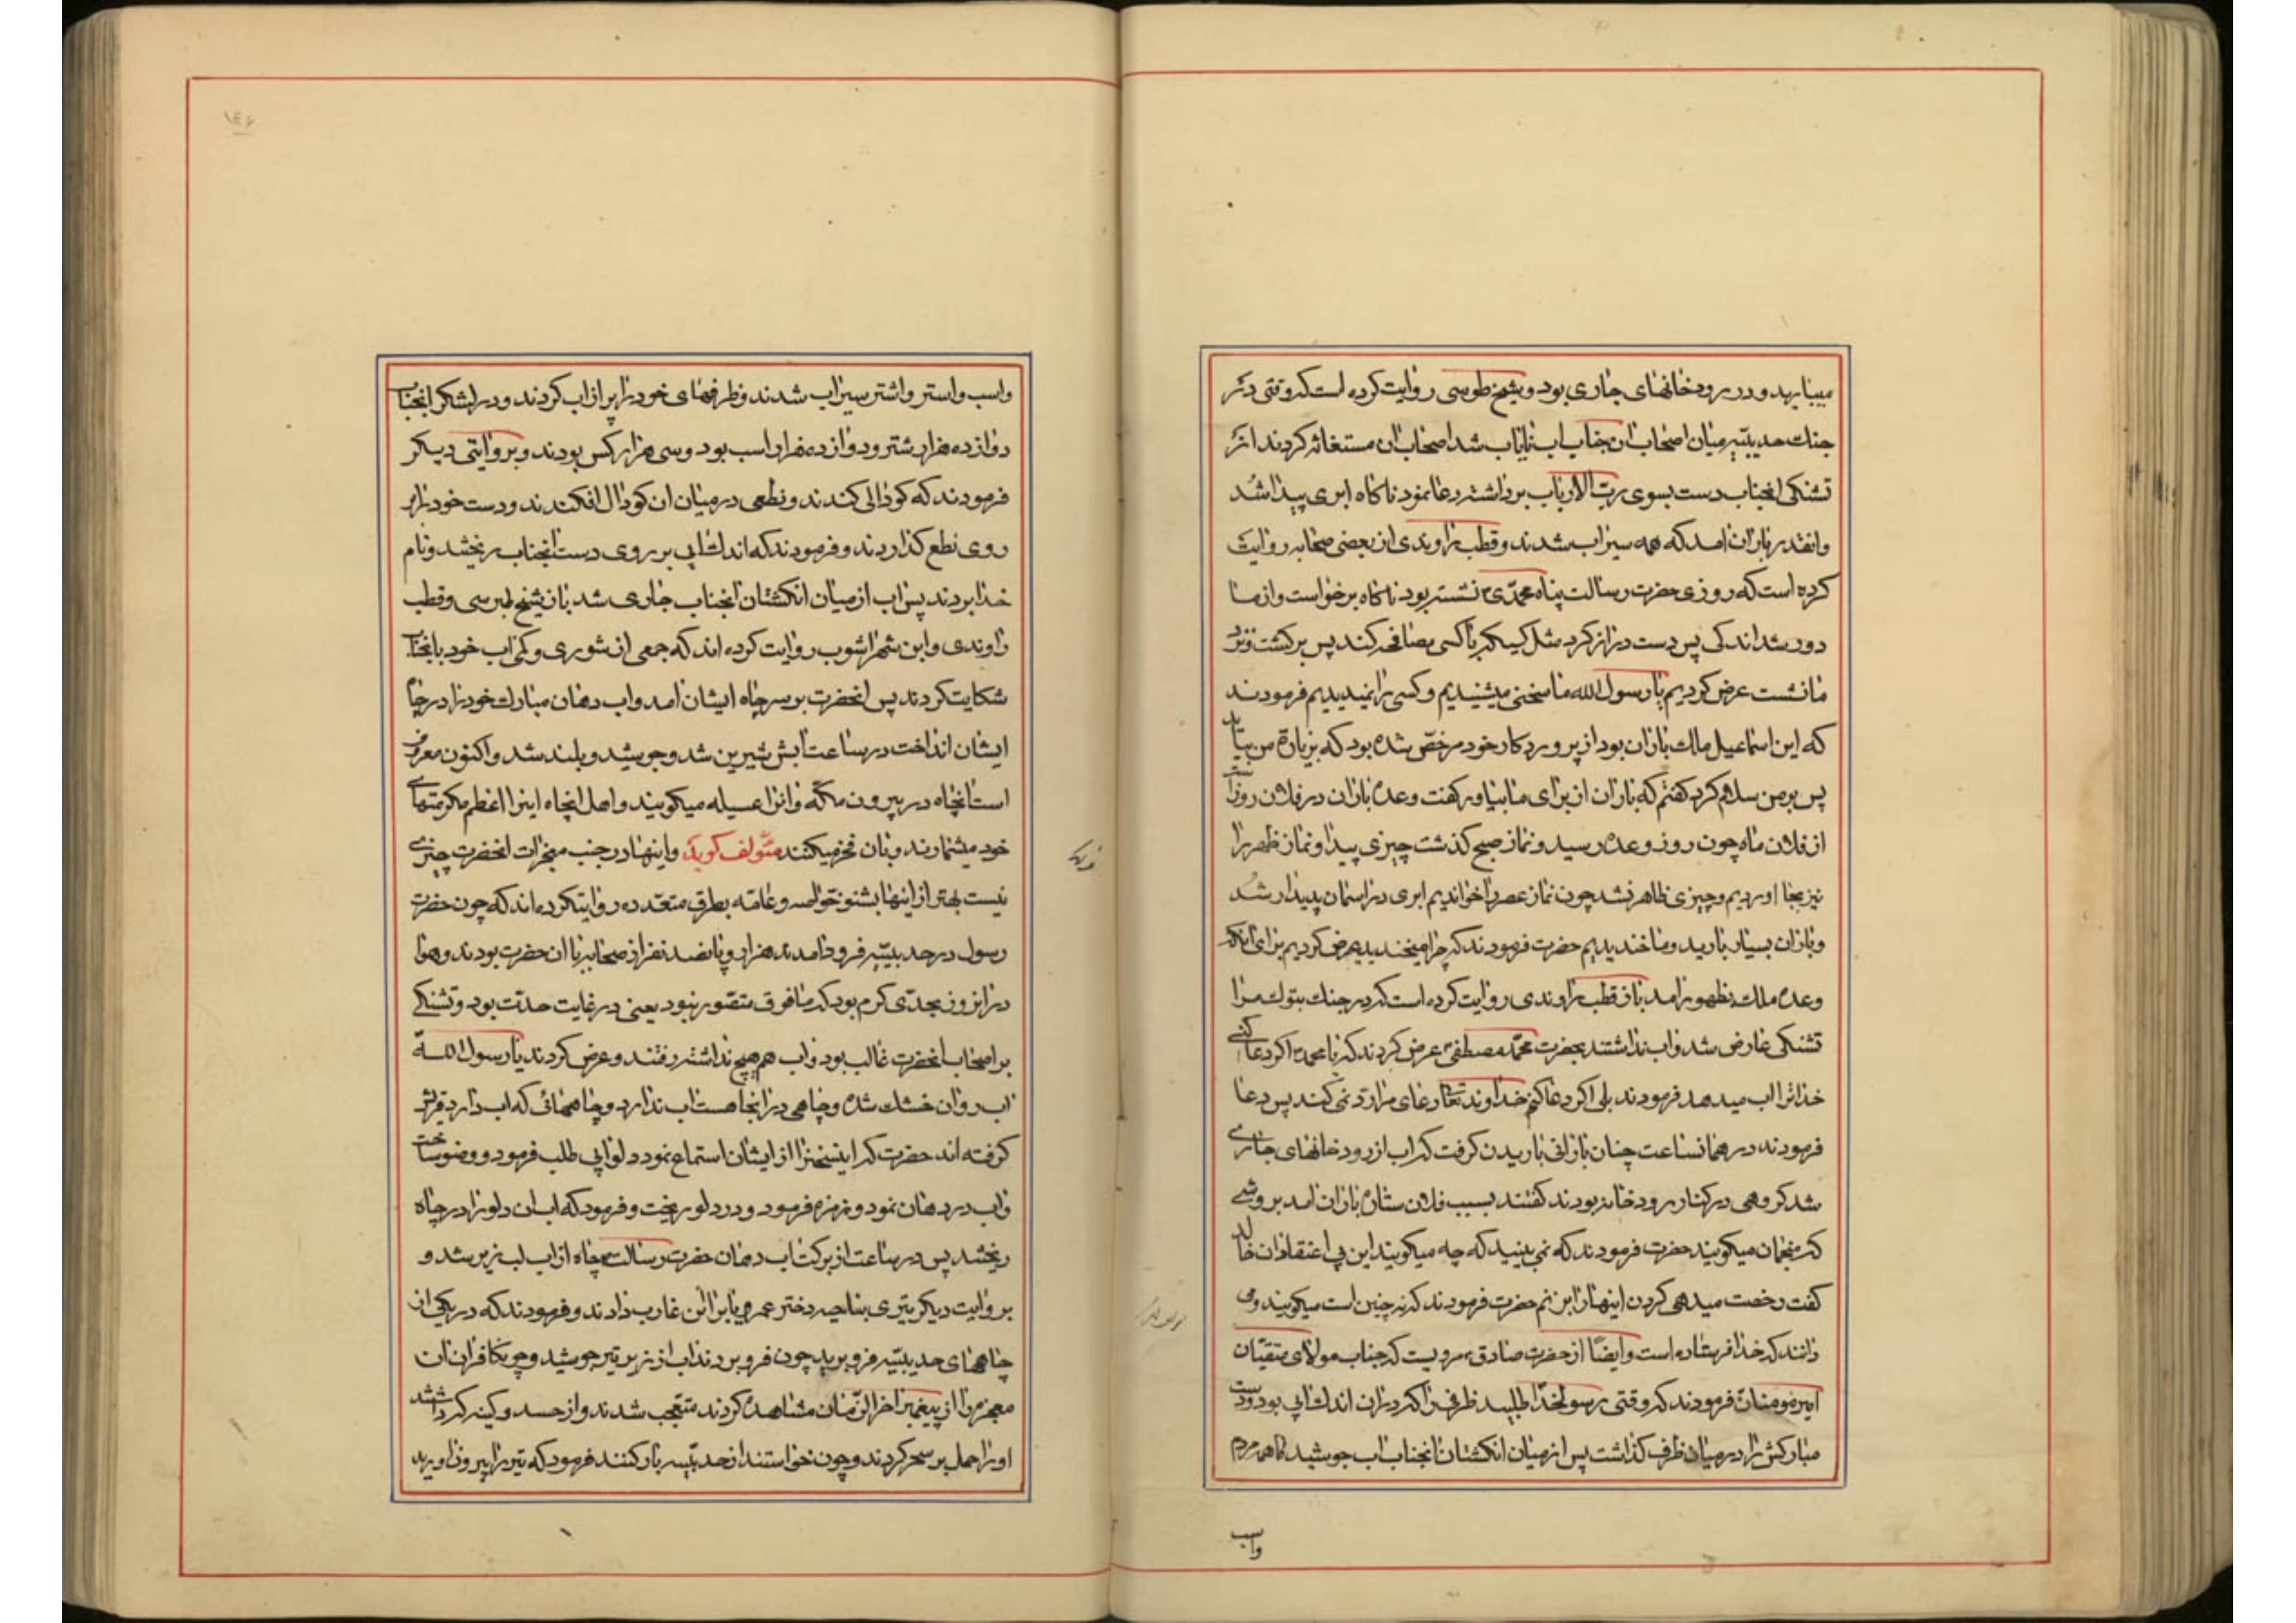 میبنا بهد و در رودخانهای جاری بود و شیخ طوسی روایت کرده است که وقتی در
جنك حدیبیّه میان اصحاب آن جناب اب نایاب شد اصحاب ان مستغاثه کردند از
تشنکی انجناب دست بسوی ربّ الارباب برداشته دعا نمود ناکاه ابری پیدا شد
وانقدر باران امد که همه سیراب شدند و قطب راوندی از بعضی صحابه روایت
کرده است که روزی حضرت رسالت پناه محمّدی نشسته بود ناکاه برخواست و از ما
دور شد اندکی پس دست دراز کرد مثل کسیکه با کسی مصافحه کند پس برکشت و نزد
ما نشست عرض کردیم یا رسول الله ما سخنی میشنیدیم و کسی را نمیدیدیم فرمودند
که این اسماعیل ملك باران بود از پروردکار خود مرخّص شده بود که بزیارة من بیاید
پس بر من سلام کرد کفتم که باران از برای ما بیاور کفت وعده باران در فلان روز است
از فلان ماه چون روز وعده رسید و نماز صبح کذشت چیزی پیدا و نماز ظهر را
نیز بجا اوردیم و چیزی ظاهر نشد چون نماز عصر را خواندیم ابری در اسمان پدیدار شد
و باران بسیار بارید و ما خندیدیم حضرت فرمودند که چرا میخندید عرض کردیم برای انکه
وعده ملك بظهور امد باز قطب راوندی روایت کرده است که در جنك بتوك مرا
تشنکی عارض شد و اب نداشتند بحضرت محمّد مصطفی عرض کردند که یا محمد اکر دعا کنی
خدا ترا اب میدهد فرمودند بلی اکر دعا کنم خداوند تعالی دعای مرا ردّ نمی کند پس دعا
فرمودند در همانساعت چنان بارانی باریدن کرفت که اب از رودخانهای جاری
شد کروهی در کنار رودخانه بودند کفتند بسبب فلان ستاره باران امد بروشی
که منجمان میکویند حضرت فرمودند که نمی بینید که چه میکویند این بی اعتقادان خالد
کفت رخصت میدهی کردن اینها را بزنم حضرت فرمودند که نه چنین است میکویند و می
دانند که خدا فرستاده است و ایضًا از حضرت صادق مرویست که جناب مولای متقیّان
امیر مومنان فرمودند که وقتی رسولخدا طلبید ظرفی را که در ان اندك ابی بود و دست
مبارکش را در میان ظرف کذاشت پس از میان انکشتان انجناب اب جوشید تا همه مردم
واسب
۱۴۶
واسب و استر و اشتر سیراب شدند و ظرفهای خود را پر از اب کردند و در لشکر انجناب
دوازده هزار شتر و دوازده هزار اسب بود و سی هزار کس بودند و بروایتی دیکر
فرمودند که کودالی کندند و نطعی در میان ان کودال افکندند و دست خود را بر
روی نطع کذاردند و فرمودند که اندك ابی بر روی دست انجناب ریختند و نام
خدا بردند پس اب از میان انکشتان انجناب جاری شد باز شیخ طبرسی و قطب
راوندی و ابن شهراشوب روایت کرده اند که جمعی از شوری و کمی اب خود بانجناب
شکایت کردند پس انحضرت بر سر چاه ایشان امد و اب دهان مبارك خود را در چاه
ایشان انداخت در ساعت ابش شیرین شد و جوشید و بلند شد و اکنون معروف
است انچاه در بیرون مکّه و انرا عسیله میکویند و اهل انچاه اینرا اعظم مکرمتهای
خود میشمارند و بان فخر میکنند مؤلف کوید و اینها در جنب معجزات انحضرت چیزی
نیست بهتر از اینها بشنو خواصه و عامّه بطرق متعدّده روایت کرده اند که چون حضرت
رسول در حدیبیّه فرود امدند هزار و پانصد نفر از صحابه با ان حضرت بودند و هوا
در انروز بحدّی کرم بود که مافوق متصّور نبود یعنی در غایت حدّت بود و تشنکی
بر اصحاب انحضرت غالب بود و اب هم هیچ نداشته رفتند و عرض کردند یا رسول اللّه
اب روان خشك شده و چاهی در انجا هست اب ندارد و چاههائی که اب دارد قریش
کرفته اند حضرت که اینسخنرا از ایشان استماع نمود دلو ابی طلب فرمود و وضو ساخت
و اب در دهان نمود و مزمزه فرمود و در دلو ریخت و فرمود که اب ان دلو را در چاه
ریختند پس در ساعت از برکت اب دهان حضرت رسالت چاه از اب لبریز شد و
بروایت دیکر تیری بناجیه دختر عمرو یا براابن عازب دادند و فرمودند که در یکی از
چاههای حدیبیّه فرو برید چون فرو بردند اب از زیر تیر جوشید و چون کافران ان
معجزه را از پیغمبر اخر الزّمان مشاهده کردند متعّجب شدند و از حسد و کینه که داشتند
او را حمل بر سحر کردند و چون خواستند از حدیبیّه بار کنند فرمود که تیر را بیرون اورید